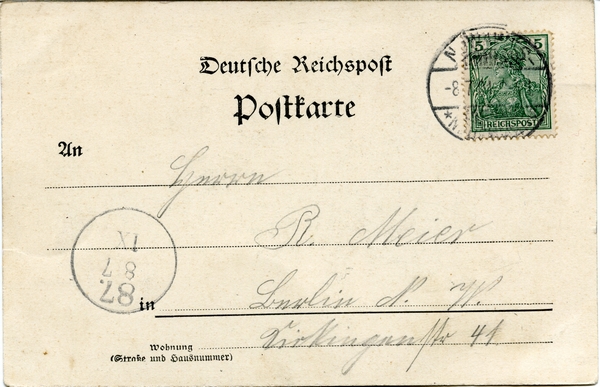 5 5
Deutsche Reichspost
REICHSPOST
Postkarte
-8
An
Herrn
R. Meier
IX
87
87.
in Berlin N. W.
Wohnung
(Straße und Hausnummer)
41